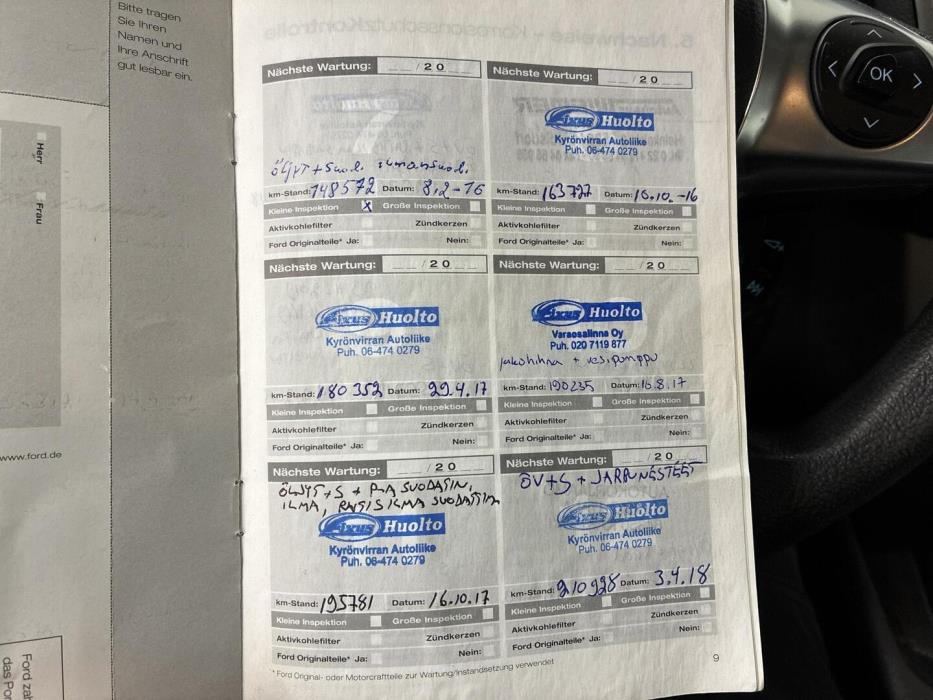 Bitte tragen
Sie Ihren
Namen und
Ihre Anschrift
gut lesbar ein.
Herr
Frau
www.ford.de
Ford zah
das Por
Nächste Wartung: __/20__
ÖLJYT + Suod. ilmansuod.
km-Stand: 148572 Datum: 8.2-16
Kleine Inspektion X Große Inspektion
Aktivkohlefilter Zündkerzen
Ford Originalteile* Ja: Nein:
Nächste Wartung: __/20__
Fixus Huolto
Kyrönvirran Autoliike
Puh. 06-474 0279
km-Stand: 163727 Datum: 16.10.-16
Kleine Inspektion Große Inspektion
Aktivkohlefilter Zündkerzen
Ford Originalteile* Ja: Nein:
Nächste Wartung: __/20__
Fixus Huolto
Kyrönvirran Autoliike
Puh. 06-474 0279
km-Stand: 180352 Datum: 29.4.17
Kleine Inspektion Große Inspektion
Aktivkohlefilter Zündkerzen
Ford Originalteile* Ja: Nein:
Nächste Wartung: __/20__
Fixus Huolto
Varaosalinna Oy
Puh. 020 7119 877
jakohihna + vesipumppu
km-Stand: 190235 Datum: 16.8.17
Kleine Inspektion Große Inspektion
Aktivkohlefilter Zündkerzen
Ford Originalteile* Ja: Nein:
Nächste Wartung: __/20__
ÖLJYT+S + P-A SUODATIN,
ILMA, RAITISILMA SUODATTIN
Fixus Huolto
Kyrönvirran Autoliike
Puh. 06-474 0279
km-Stand: 195781 Datum: 16.10.17
Kleine Inspektion Große Inspektion
Aktivkohlefilter Zündkerzen
Ford Originalteile* Ja: Nein:
Nächste Wartung: __/20__
ÖV+S + JARRUNESTEET
Fixus Huolto
Kyrönvirran Autoliike
Puh. 06-474 0279
km-Stand: 210928 Datum: 3.4.18
Kleine Inspektion Große Inspektion
Aktivkohlefilter Zündkerzen
Ford Originalteile* Ja: Nein:
* Ford Original- oder Motorcraftteile zur Wartung/Instandsetzung verwendet
9
OK